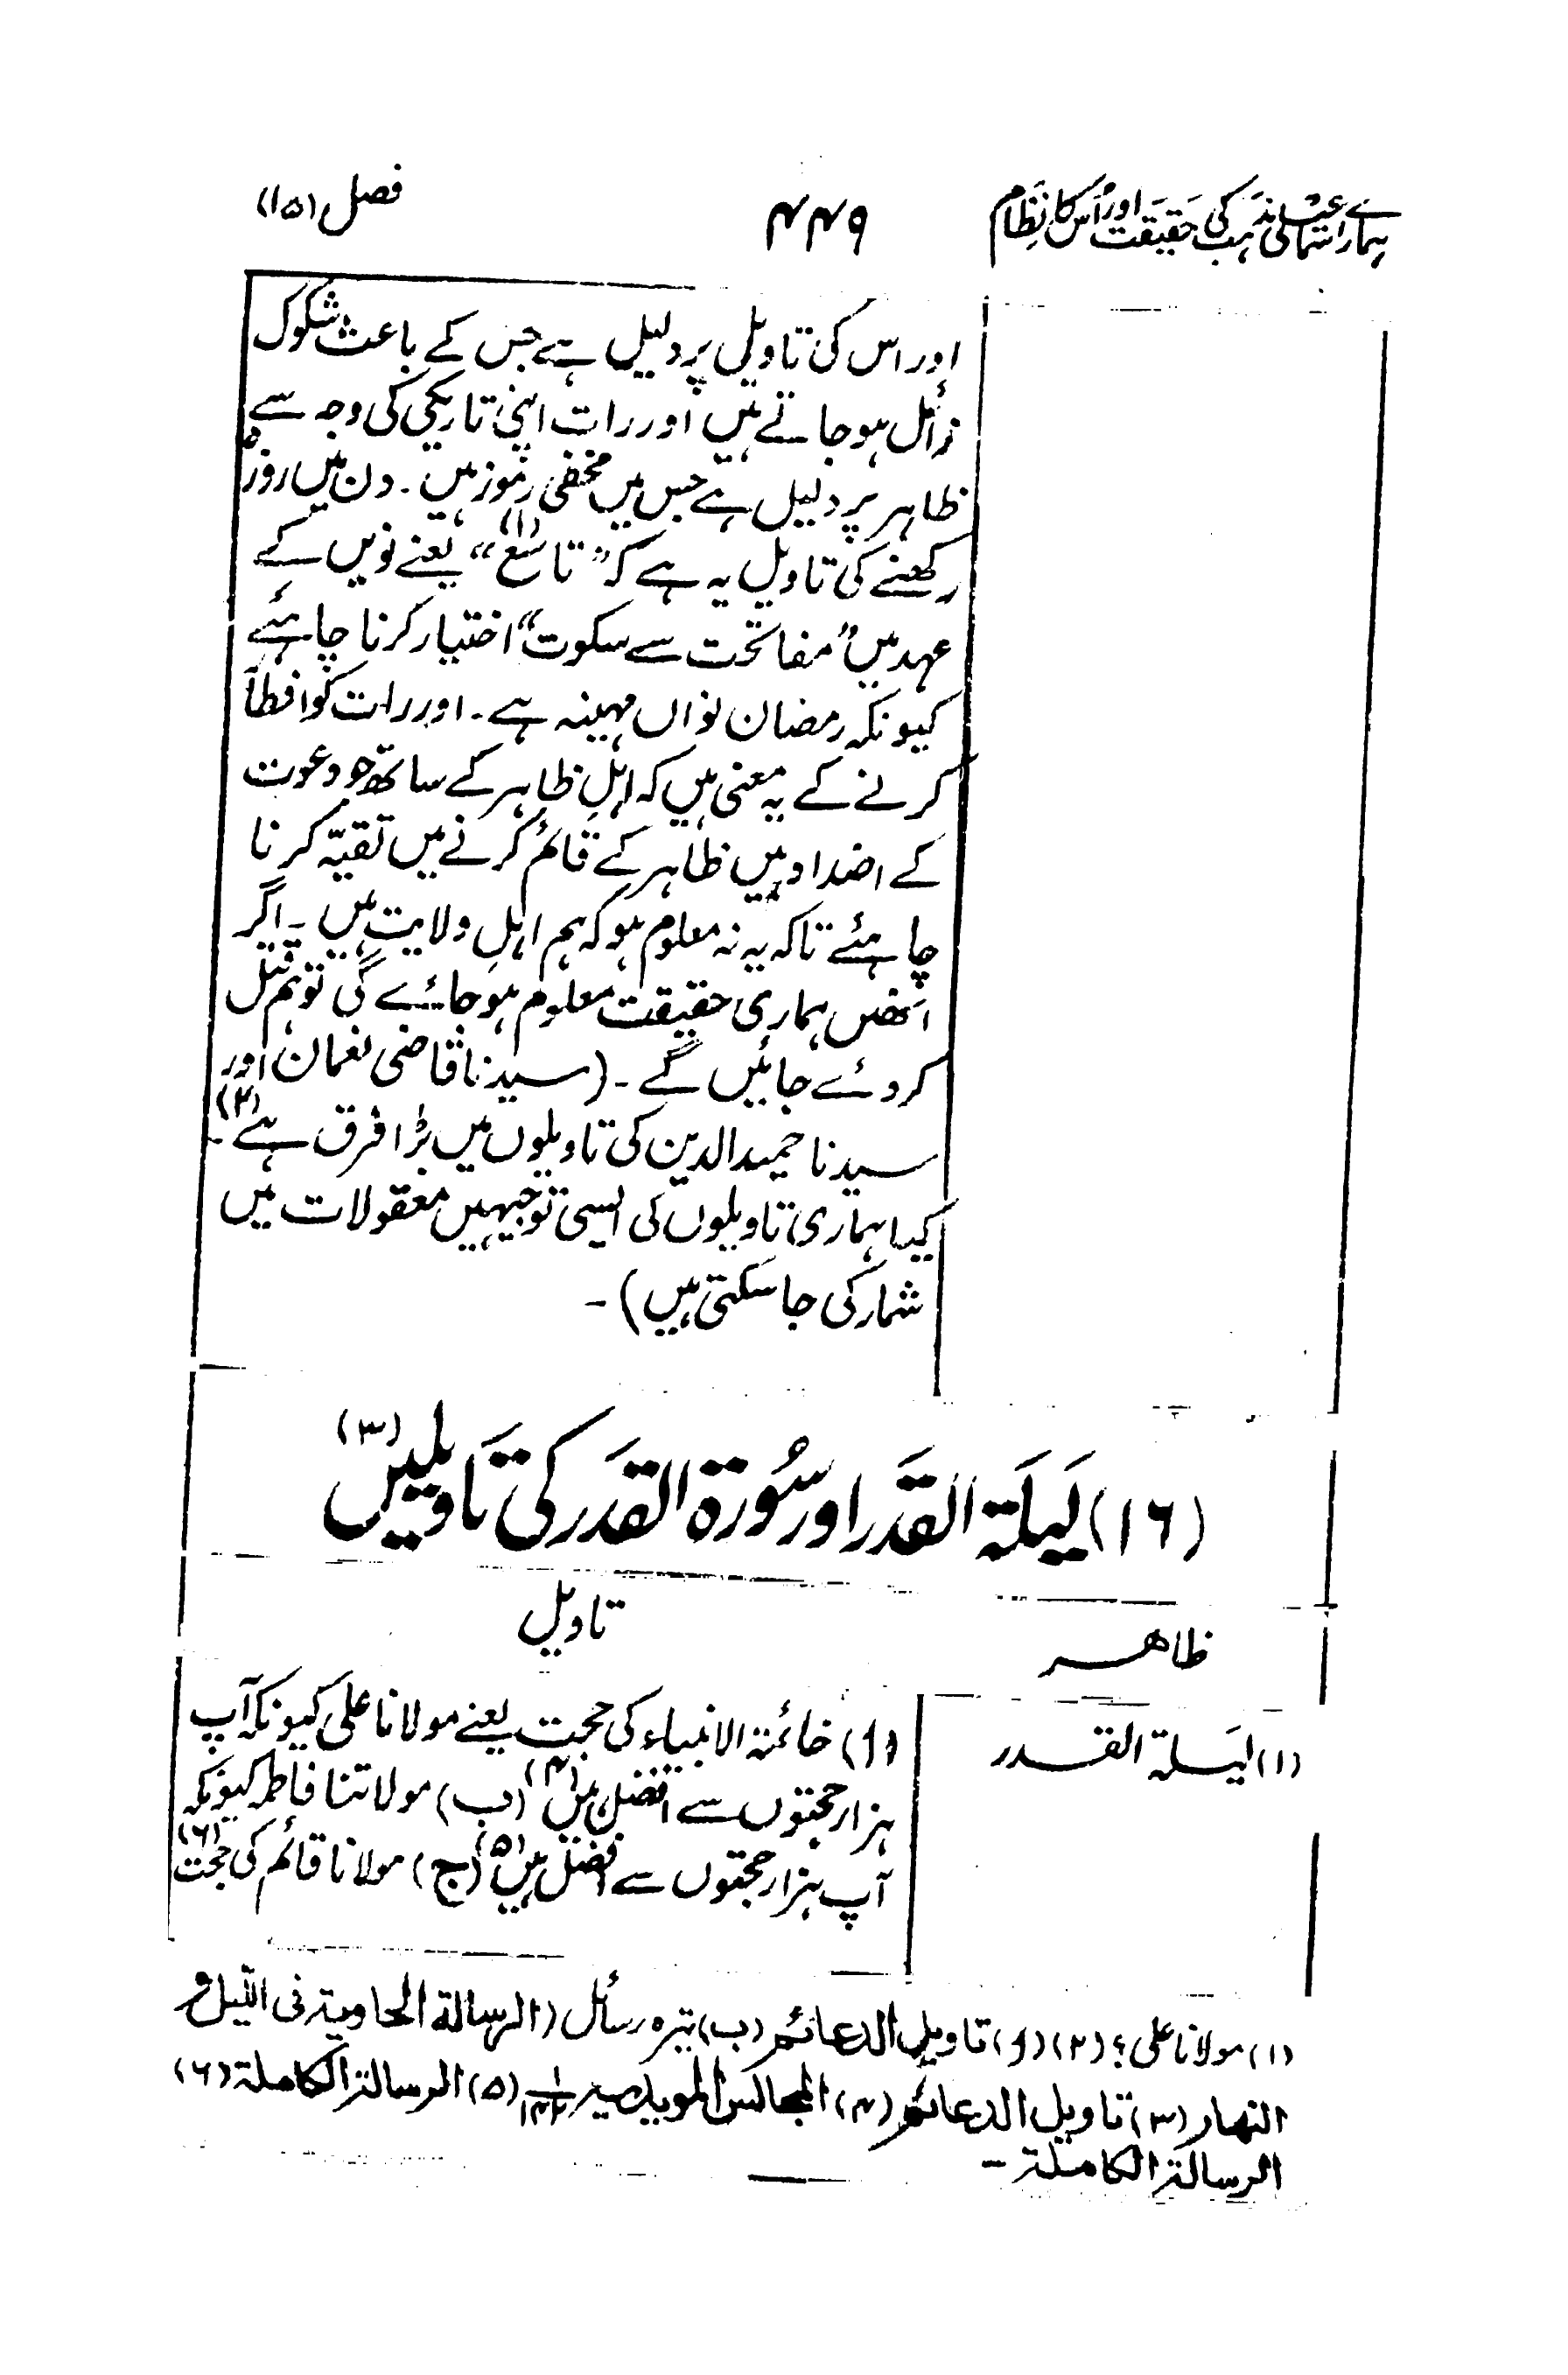 ہمارے اسمٰعیلی مذہب کی حقیقت اور اُس کا نظام
۴۴۹
فصل (۱۵)
اور اس کی تاویل پر دلیل ہے جس کے باعث شکوک
زائل ہو جاتے ہیں اور رات اپنی تاریکی کی وجہ سے
ظاہر پر دلیل ہے جس میں مخفی رموز ہیں ۔ دن میں روزہ
رکھنے کی تاویل یہ ہے کہ ”تاسع“ (۱) یعنے نویں کے
عہد میں ”مفاتحت سے سکوت“ اختیار کرنا چاہئے
کیونکہ رمضان نواں مہینہ ہے ۔ اور رات کو افطار
کرنے کے یہ معنی ہیں کہ اہلِ ظاہر کے ساتھ جو دعوت
کے اضداد ہیں ظاہر کے قائم کرنے میں تقیّہ کرنا
چاہئے تاکہ یہ نہ معلوم ہو کہ ہم اہلِ ولایت ہیں ۔ اگر
انھیں ہماری حقیقت معلوم ہو جائے گی تو ہم قتل
کر دئے جائیں گے ۔ (سیدنا قاضی نعمان اور
سیدنا حمید الدین کی تاویلوں میں بڑا فرق ہے (۲) ۔
کیا ہماری تاویلوں کی ایسی توجیہیں معقولات میں
شمار کی جا سکتی ہیں) ۔
(۱۶) لَیلَۃ القَدَر اور سُورۃ القَدَر کی تَاویلیں (۳)
ظاہر
تاویل
(۱) لیَلۃ القدر
(ا) خاتمۃ الانبیاء کی حجت یعنے مولانا علی کیونکہ آپ
ہزار حجتوں سے افضل ہیں (۴) (ب) مولاتنا فاطمہ کیونکہ
آپ ہزار حجتوں سے افضل ہیں (۵) (ج) مولانا قائم کی حجت (۶)
(۱) مولانا علی ؟ (۲) (ا) تاویل الدعائم (ب) تیرہ رسائل (الرسالۃ الحاویۃ فی اللیل و
النھار (۳) تاویل الدعائم (۴) المجالس المویدیہ (۵) الرسالۃ الکاملۃ (۶)
الرسالۃ الکاملۃ ۔